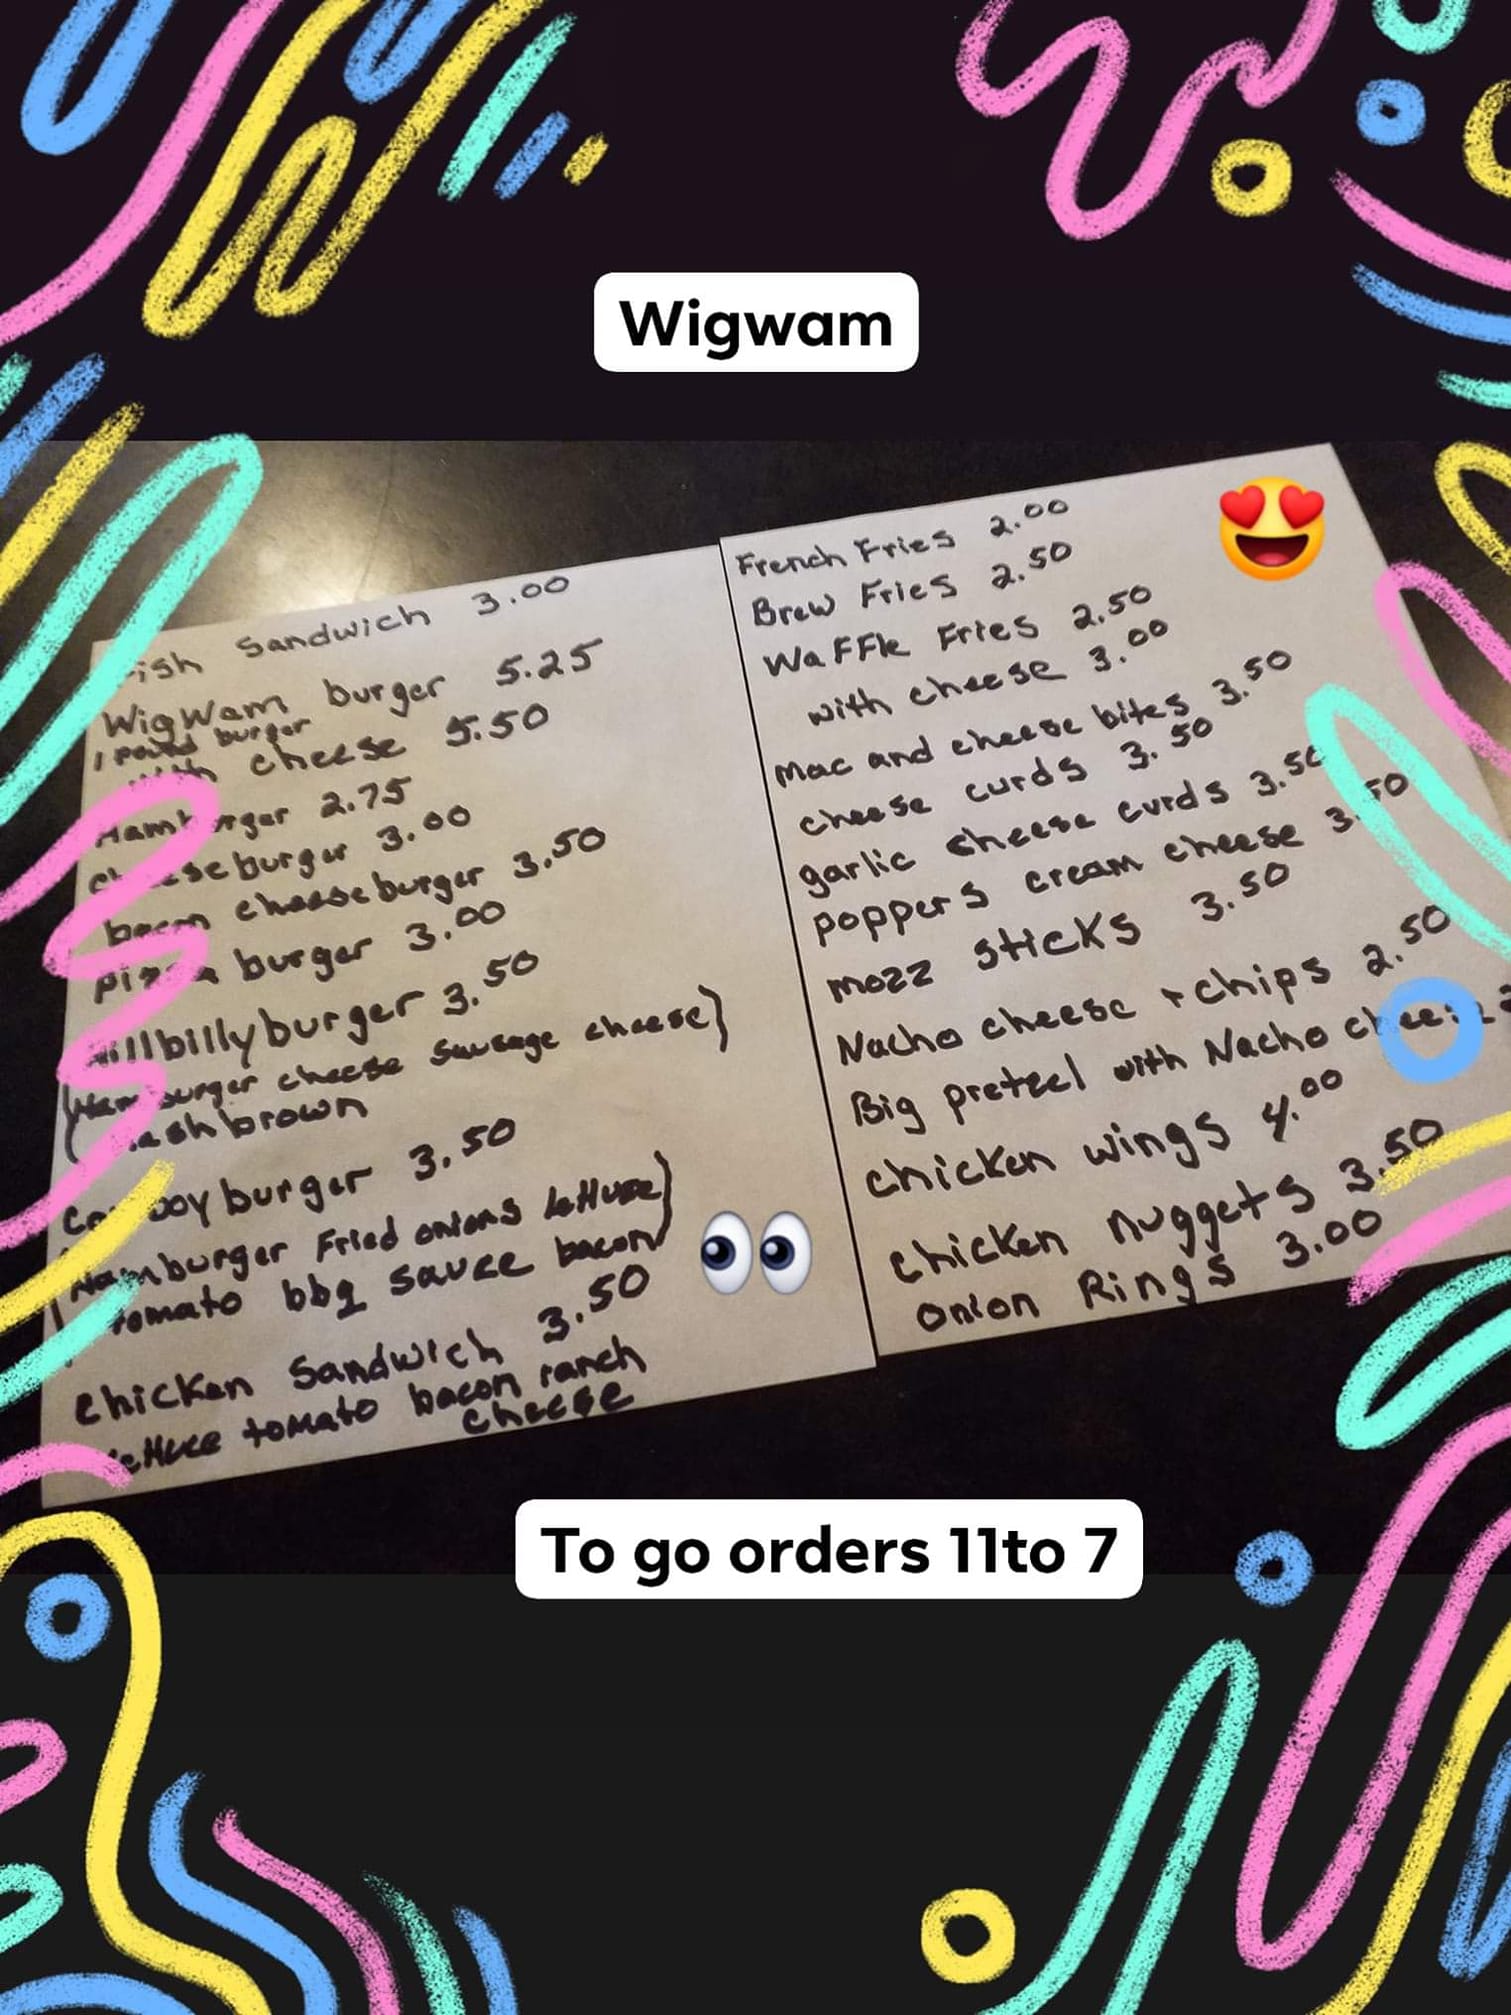 Wigwam
Fish Sandwich 3.00
WigWam burger 5.25
1 pound burger
with cheese 5.50
Hamburger 2.75
cheeseburger 3.00
bacon cheeseburger 3.50
pizza burger 3.00
Hillbilly burger 3.50
(Hamburger cheese sausage cheese)
hashbrown
Cowboy burger 3.50
(Hamburger Fried onions lettuce)
tomato bbq sauce bacon
Chicken Sandwich 3.50
lettuce tomato bacon ranch
cheese
French Fries 2.00
Brew Fries 2.50
Waffle Fries 2.50
with cheese 3.00
Mac and cheese bites 3.50
cheese curds 3.50
garlic cheese curds 3.50
poppers cream cheese 3.50
mozz sticks 3.50
Nacho cheese + chips 2.50
Big pretzel with Nacho cheese
chicken wings 4.00
chicken nuggets 3.50
Onion Rings 3.00
To go orders 11to 7